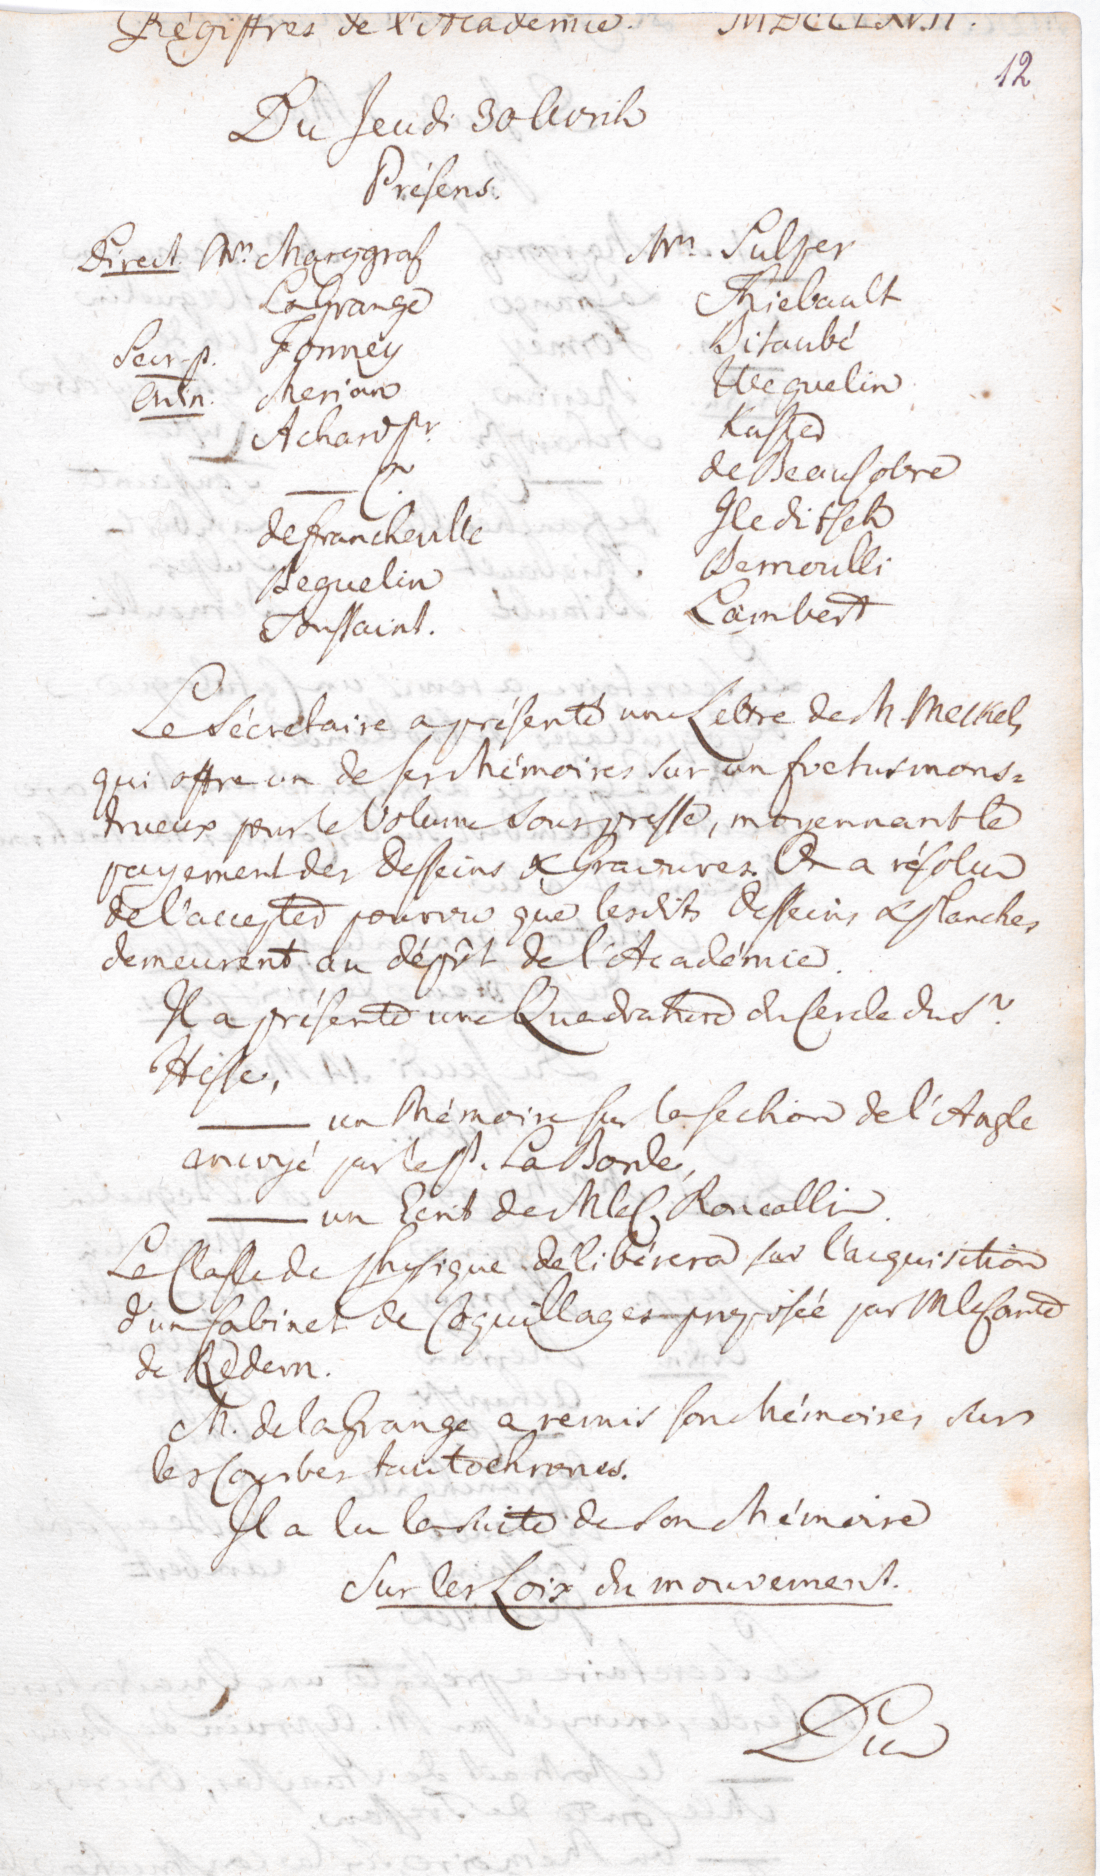 Régistres de l'Académie. MDCCLXVII.
12
Du Jeudi 30 Avril
Présens.
Direct. Mrs. Marggraf
La Grange
Secr. p. Formey
Merian
Achard pr.
de Francheville
Beguelin
Toussaint.
Mrs. Sulzer
Thiebault
Bitaubé
Weguelin
Kuster
de Beausobre
Gleditsch
Bernoulli
Lambert
Le Sécrétaire a présenté une Lettre de M. Meckel,
qui offre un de ses Mémoires sur un foetus mons=
trueux pour le Volume sous presse, moyennant le
payement des desseins & Gravures. On a résolu
de l'accepter pourvu que lesdits desseins & planches
demeurent au dépôt de l'Académie.
Il a présenté une Quadrature du Cercle du Sr.
Hesse,
un Mémoire sur la section de l'Angle
envoyé par le P. La Borde,
un Ecrit de M le C. Roncalli.
La Classe de Physique délibérera sur l'acquisition
d'un Cabinet de Coquillages proposée par M le Comte
de Redern.
M. de la Grange a remis son Mémoires sur
les Courbes tautochrones.
Il a lu la suite de son Mémoire
sur les Loix du mouvement.
Du